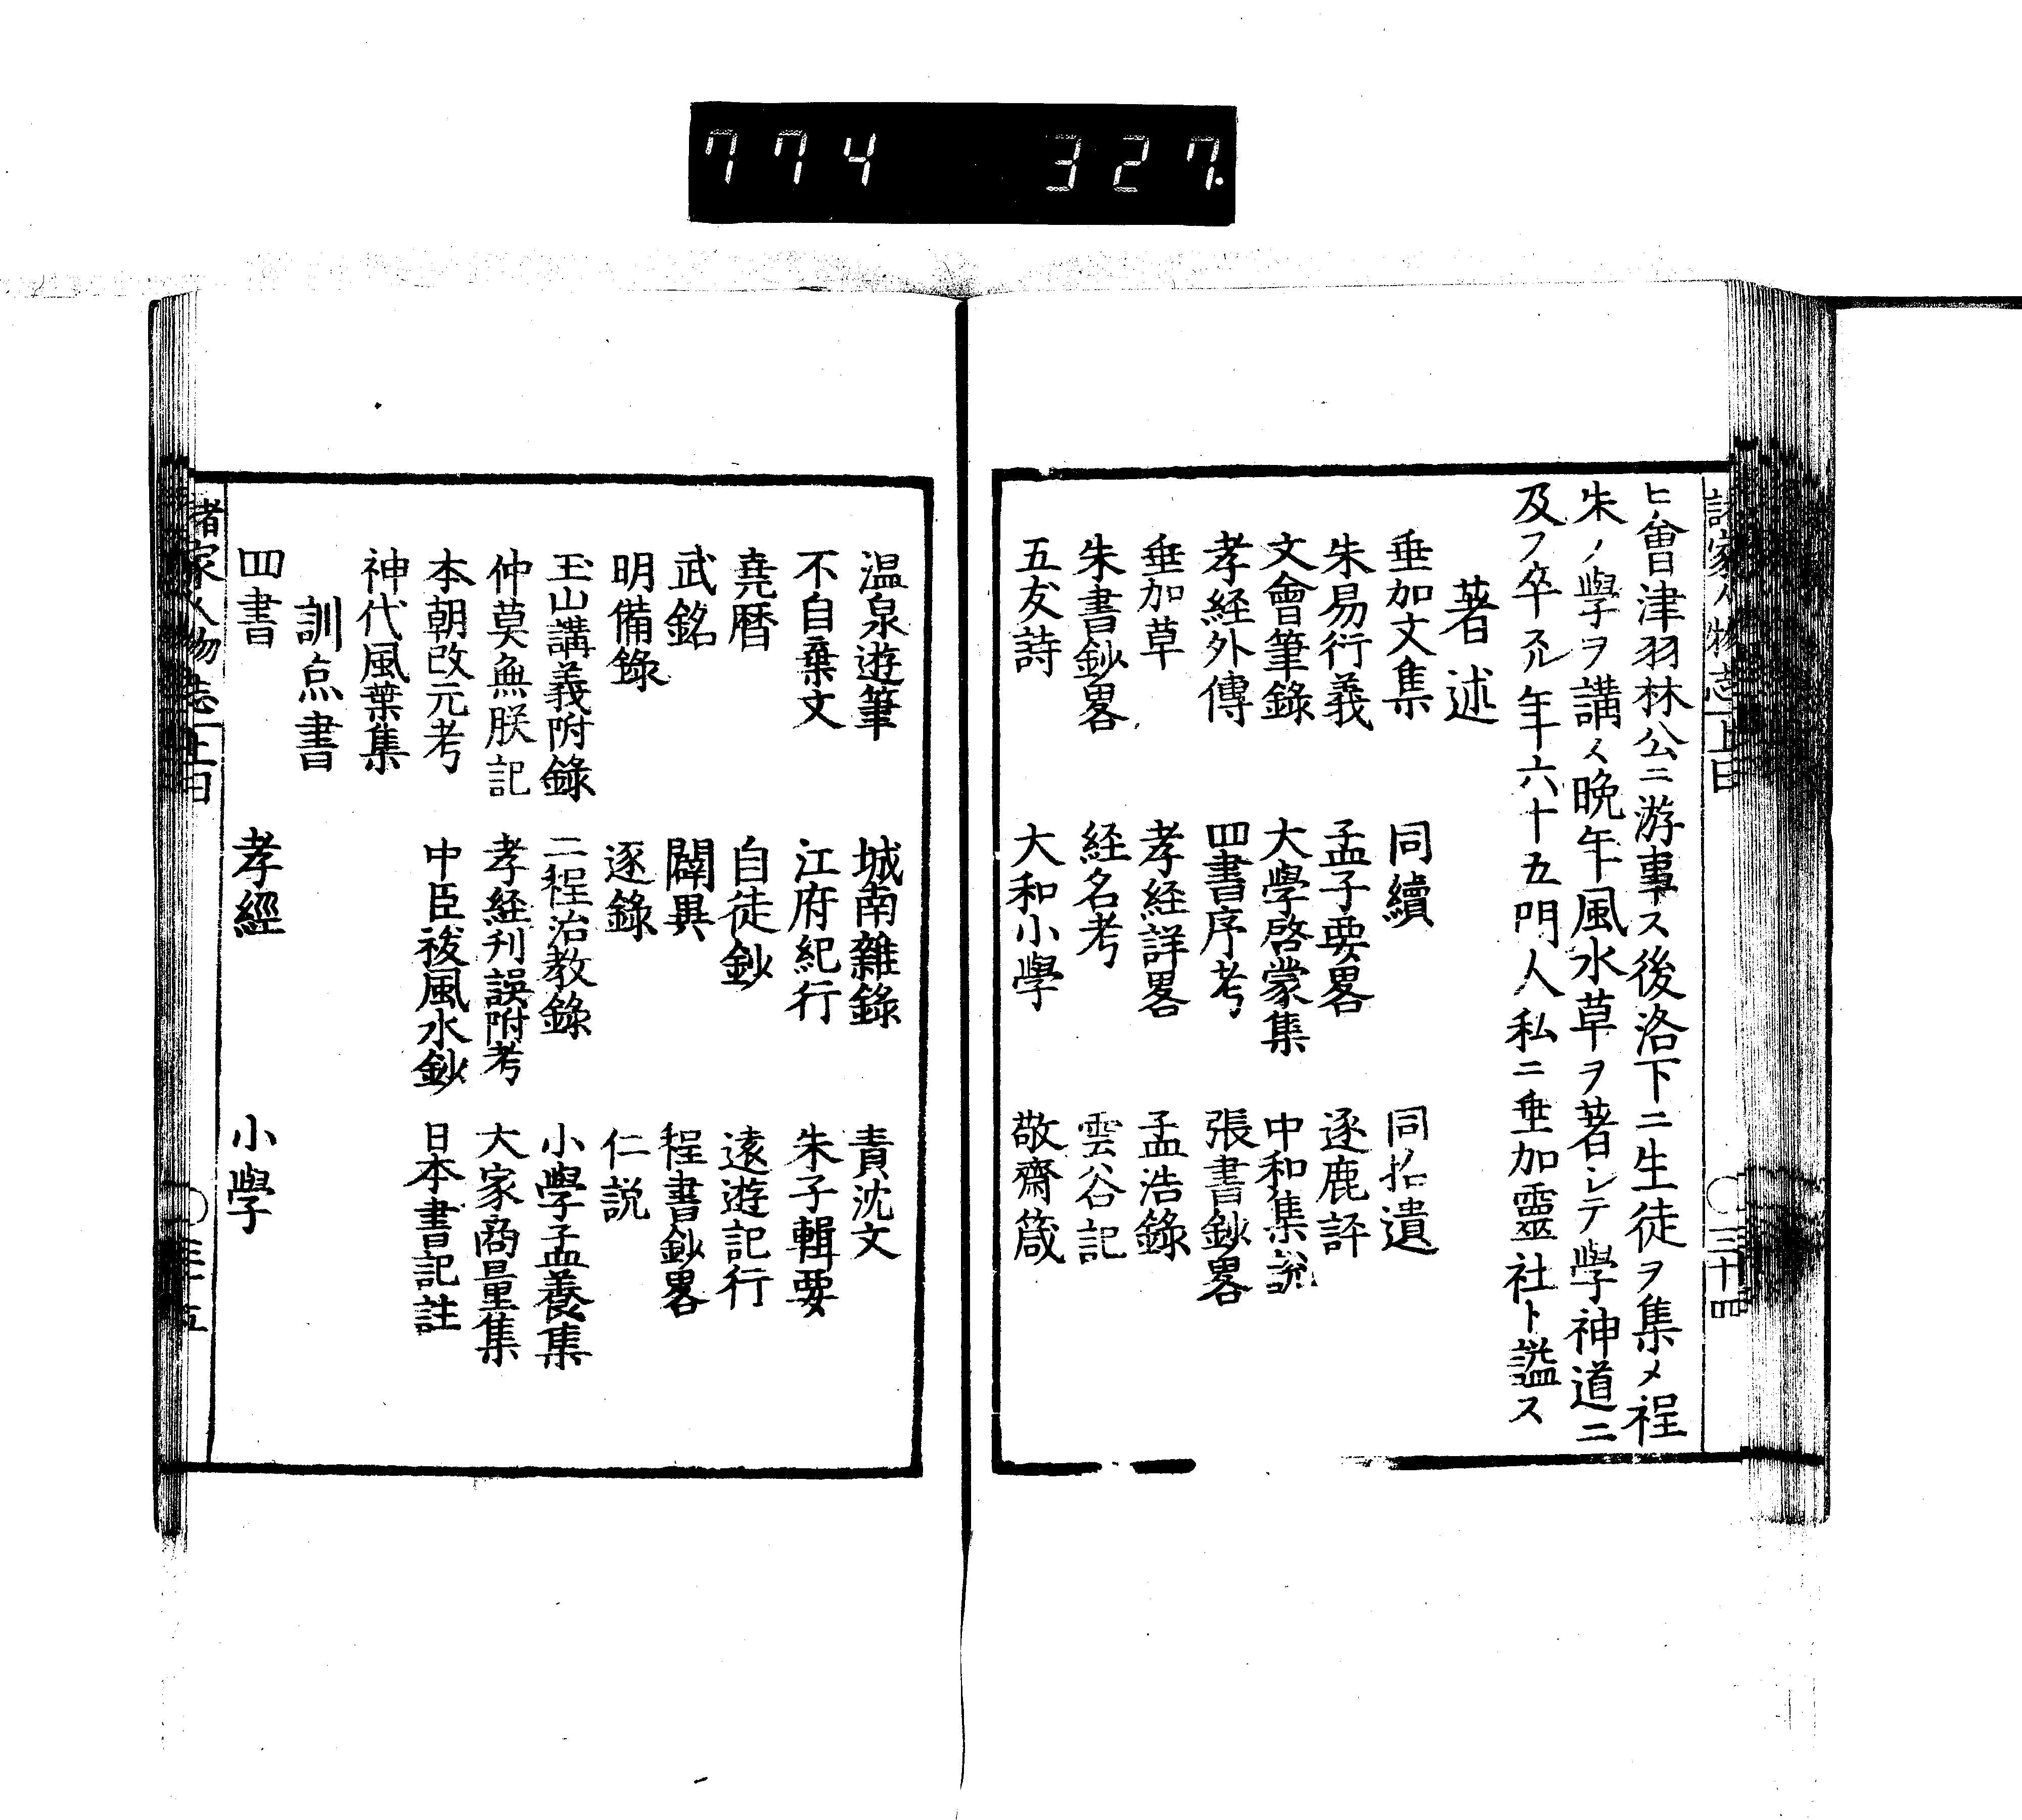 774 327.
諸家人物志 上日 〇三十四
ヒ會津羽林公ニ游事ス後洛下ニ生徒ヲ集メ程
朱ノ學ヲ講ス晩年風水草ヲ著シテ學神道ニ
及フ卒スル年六十五門人私ニ垂加靈社ト謚ス
著述
垂加文集 同續 同拾遺
朱易行義 孟子要畧 逐鹿評
文會筆錄 大學啓蒙集 中和集說
孝経外傳 四書序考 張書鈔畧
垂加草 孝経詳畧 孟浩錄
朱書鈔畧 経名考 雲谷記
五友詩 大和小學 敬齋箴
温泉遊筆 城南雜錄 責沈文
不自棄文 江府紀行 朱子輯要
堯暦 自徒鈔 遠遊記行
武銘 闢異 程書鈔畧
明備錄 逐錄 仁説
玉山講義附錄 二程治教錄 小學孟養集
仲莫無朕記 孝経刊誤附考 大家商量集
本朝改元考 中臣祓風水鈔 日本書記註
神代風葉集
訓点書
四書 孝經 小學
諸家人物志 上日 〇三十五